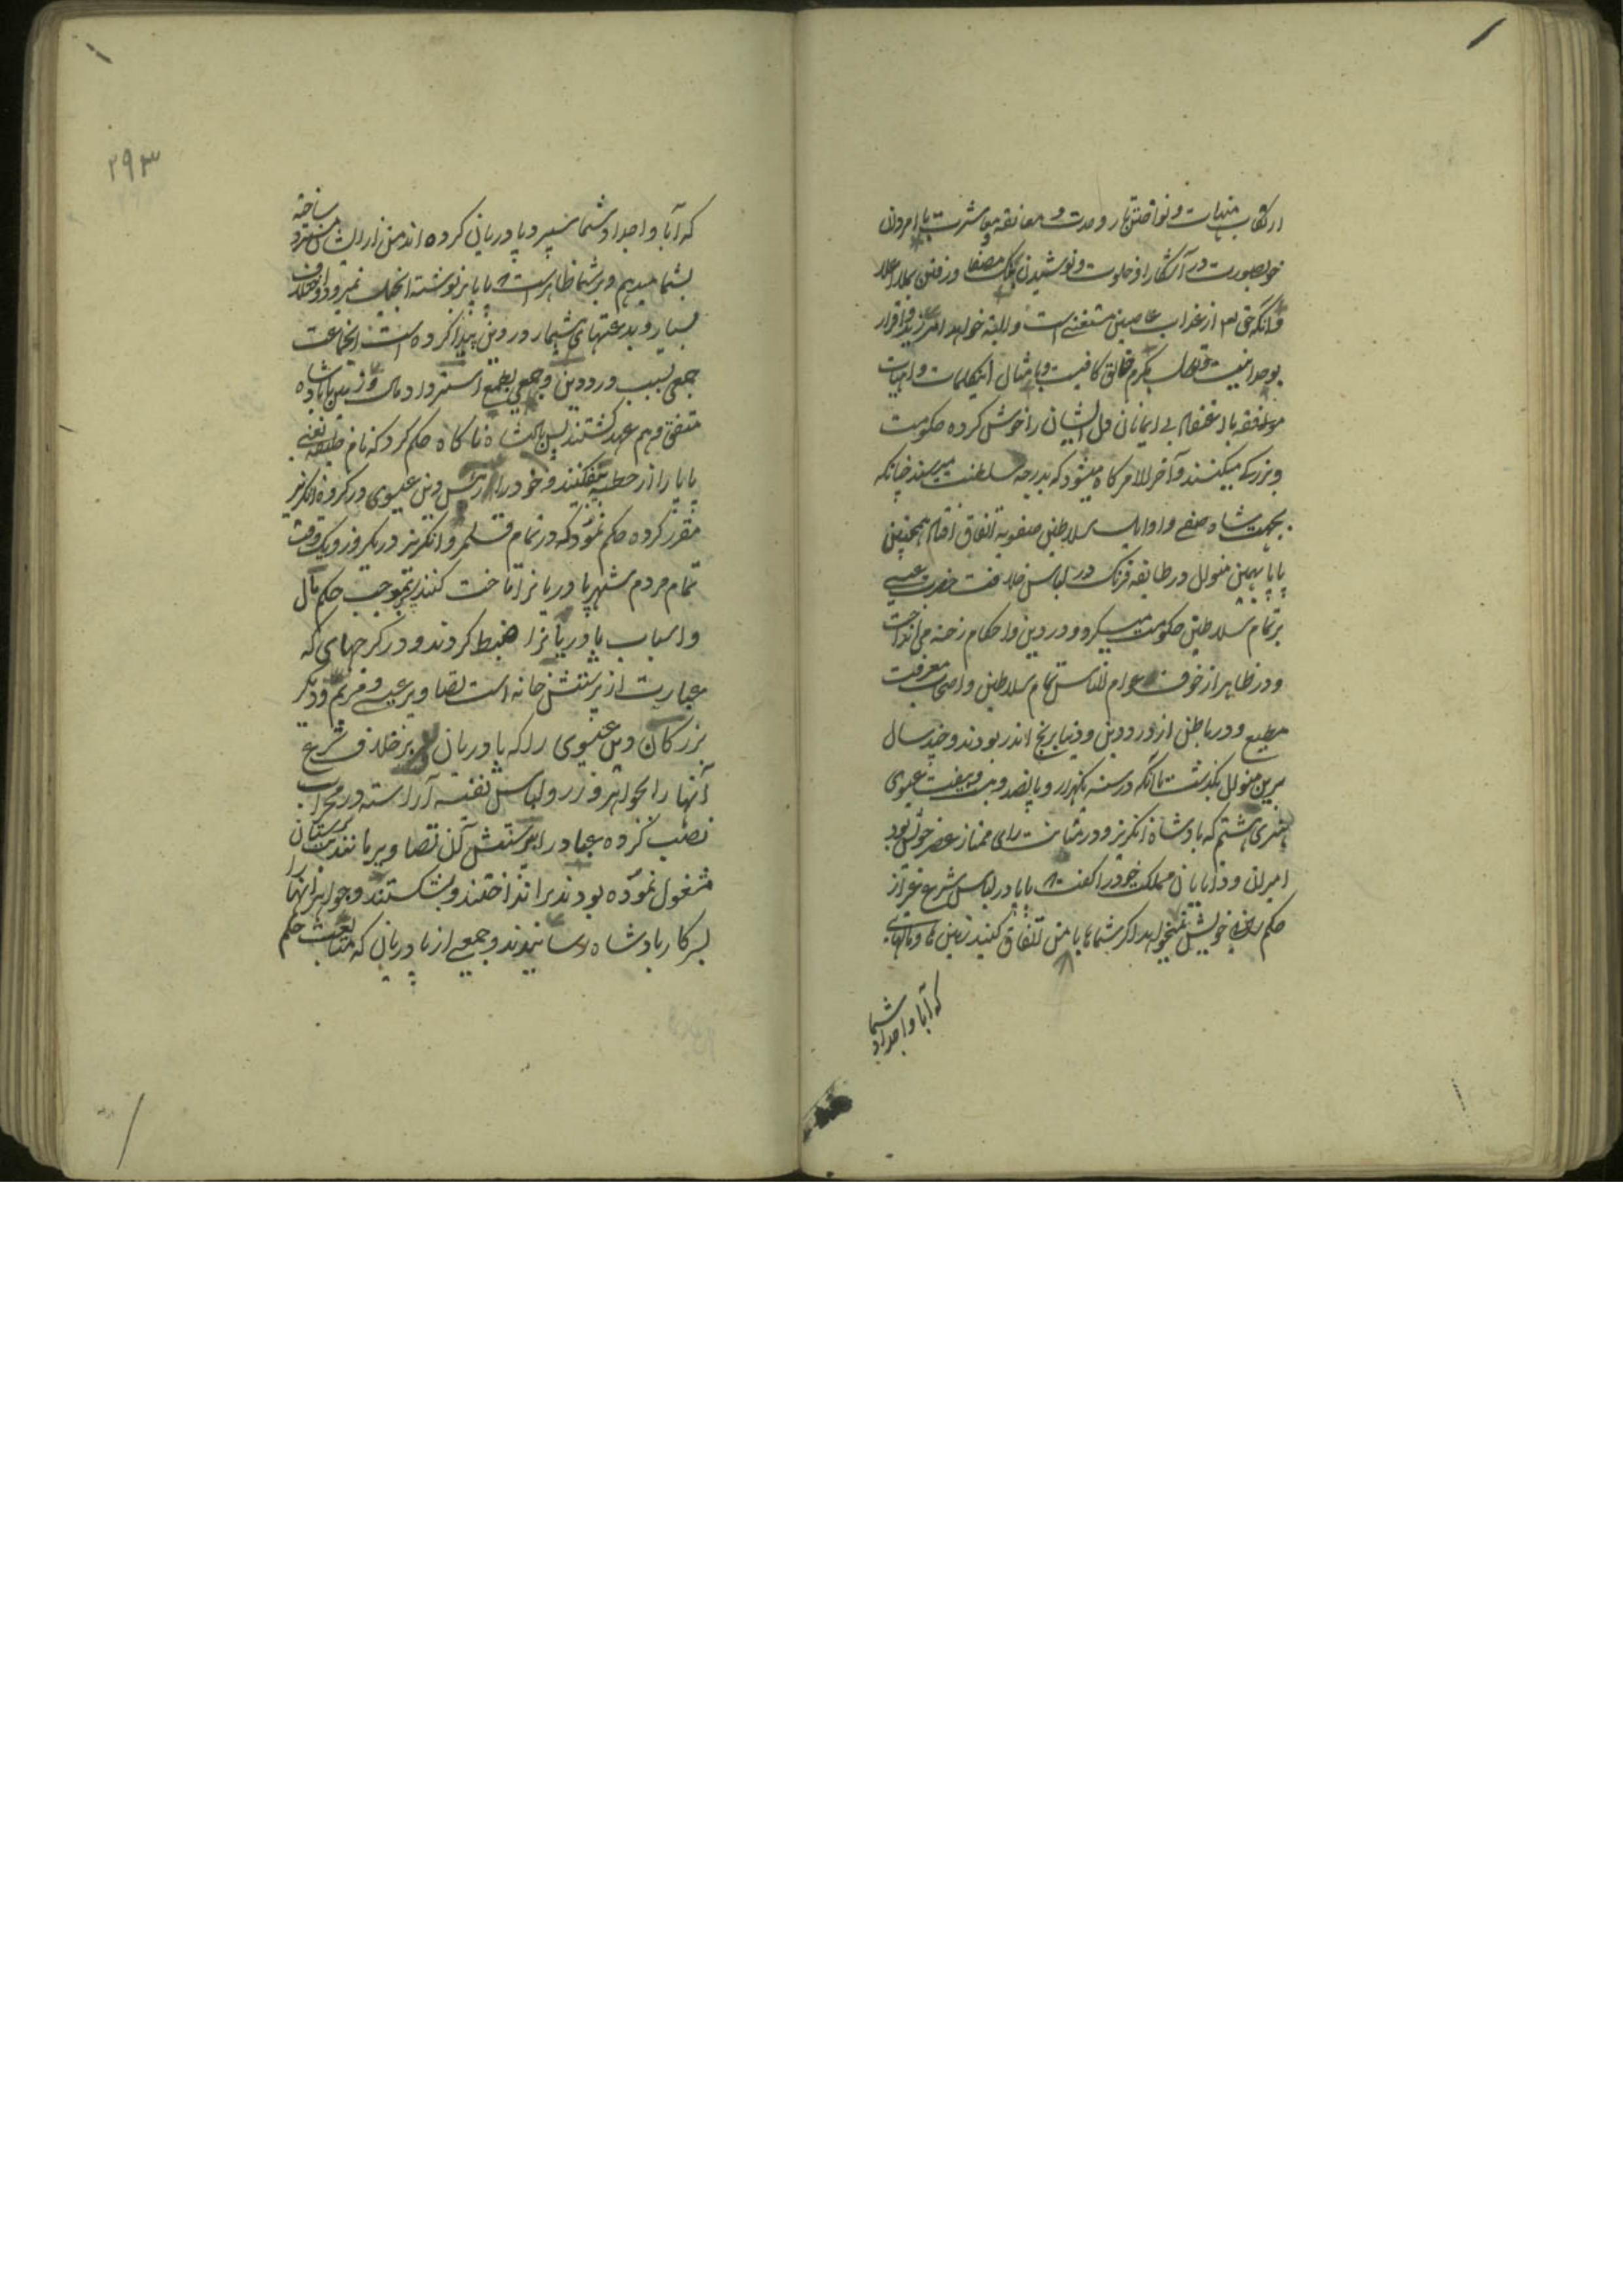 ارتکاب منهیات و نواختن تار و معانقه معاشرت با امردان
خوبصورت در آشکارا و خلوت و نوشیدن بنک مصفا و رفتن بملا اعلا
و انکه حق تع از عذاب عاصین مستغنی است و البته خواهد امرزید و اقرار
بوحدانیت کرم خالق کافیست و بامثال اینکلمات واهیات
موافقه با دغدغه بی ایمانان دل ایشان را خوش کرده حکومت
و بزرکے میکنند و آخر الامر کاه میشود که بدرجه سلطنت میرسند چنانکه
بجهت شاه صفے و اوایل سلاطین صفویه اتفاق افتاد همچنین
پاپا بهمین منوال در طایفه فرنک در لباس خلافت حضرت عیسے
بر تمام سلاطین حکومت میکرد و در دین و احکام رخنه می انداخت
و در ظاهر از خوف عوام الناس تمام سلاطین و اصحاب معرفت
مطیع و در باطن از درد دین و دنیا برنج اندر بودند و چند سال
برین منوال بکذشت تا انکه در سنه یکهزار و پانصد و بیست و هفت عیسوی
هنری هشتم که پادشاه انکریز و در متانت رای ممتاز عصر خویش بود
امیران و دانایان مملکت خود را کفت که پاپا در لباس شرع غیر از
حکم رانی خویش نمیخواهد اکر شماها با من اتفاق کنید زمین ها و مالهای
که آبا و اجداد شما
۲۹۳
که آبا و اجداد شما سپرد پادریان کرده اند من از ایشان مسترد ساخته
بشما میدهم و بر شما ظاهر است که پاپا بر نوشته انجیل نمیرود و اختلاف
بسیار و بدعتهای بیشمار در دین پیدا کرده است انجماعت
جمعی بسبب درد دین و جمعی بطمع استرداد مال و زمین با پادشاه
متفق و هم عهد کشتند پس پادشاه ناکاه حکم کرد که نام خلیفه یعنے
پاپا را از خطبه بیفکنند و خود را رئیس دین عیسوی در کروه انکریز
مقرر کرده حکم نمود که در تمام قلمرو انکریز در یکروز و یک وقت
تمام مردم شهر پادریانرا تاخت کنند بموجب حکم مال
و اسباب پادریانرا ضبط کردند و در کرجهای که
عبارت از پرستش خانه است تصاویر عیسے و مریم و دیکر
بزرکان دین عیسوی را که پادریان بر خلاف شرع
آنها را بجواهر و زر و لباس نفیسه آراسته در محراب
نصب کرده عباد را بپرستش آن تصاویر مانند بت پرستان
مشغول نموده بودند بر انداختند و بشکستند و جواهر انها را
بسرکار پادشاه رسانیدند و جمعے از پادریان که متابعت حکم